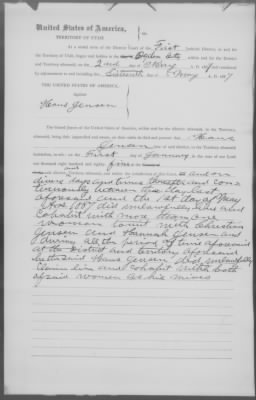 United States of America,
TERRITORY OF UTAH.
At a stated term of the District Court of the First Judicial District, in and for
the Territory of Utah, begun and holden in Ogden City within and for the District
and Territory aforesaid, on the 2nd day of May A. D. 1887 and continued
by adjournments to and including the Sixteenth day of May A. D. 1887
THE UNITED STATES OF AMERICA,
AGAINST
Hans Jensen
The Grand Jurors of the United States of America, within and for the district aforesaid, in the Territory
aforesaid, being duly impaneled and sworn, on their oaths do find and present that Hans
Jensen late of said district, in the Territory aforesaid,
heretofore, to-wit: on the First day of January in the year of our Lord
one thousand eight hundred and eighty five
and within the jurisdiction of this and on
divers days and times thereafter and con
tinuously between the 1st day of
aforesaid and the 1st day of May
A.D. 1887 did unlawfully live and
Cohabit with more than one
woman to wit with Christian
Jensen and Hannah Jensen and
during all the period of time aforesaid
at the District and Territory aforesaid
he the said Hans Jensen did unlawfully
Claim live and cohabit with both
of said women as his wives